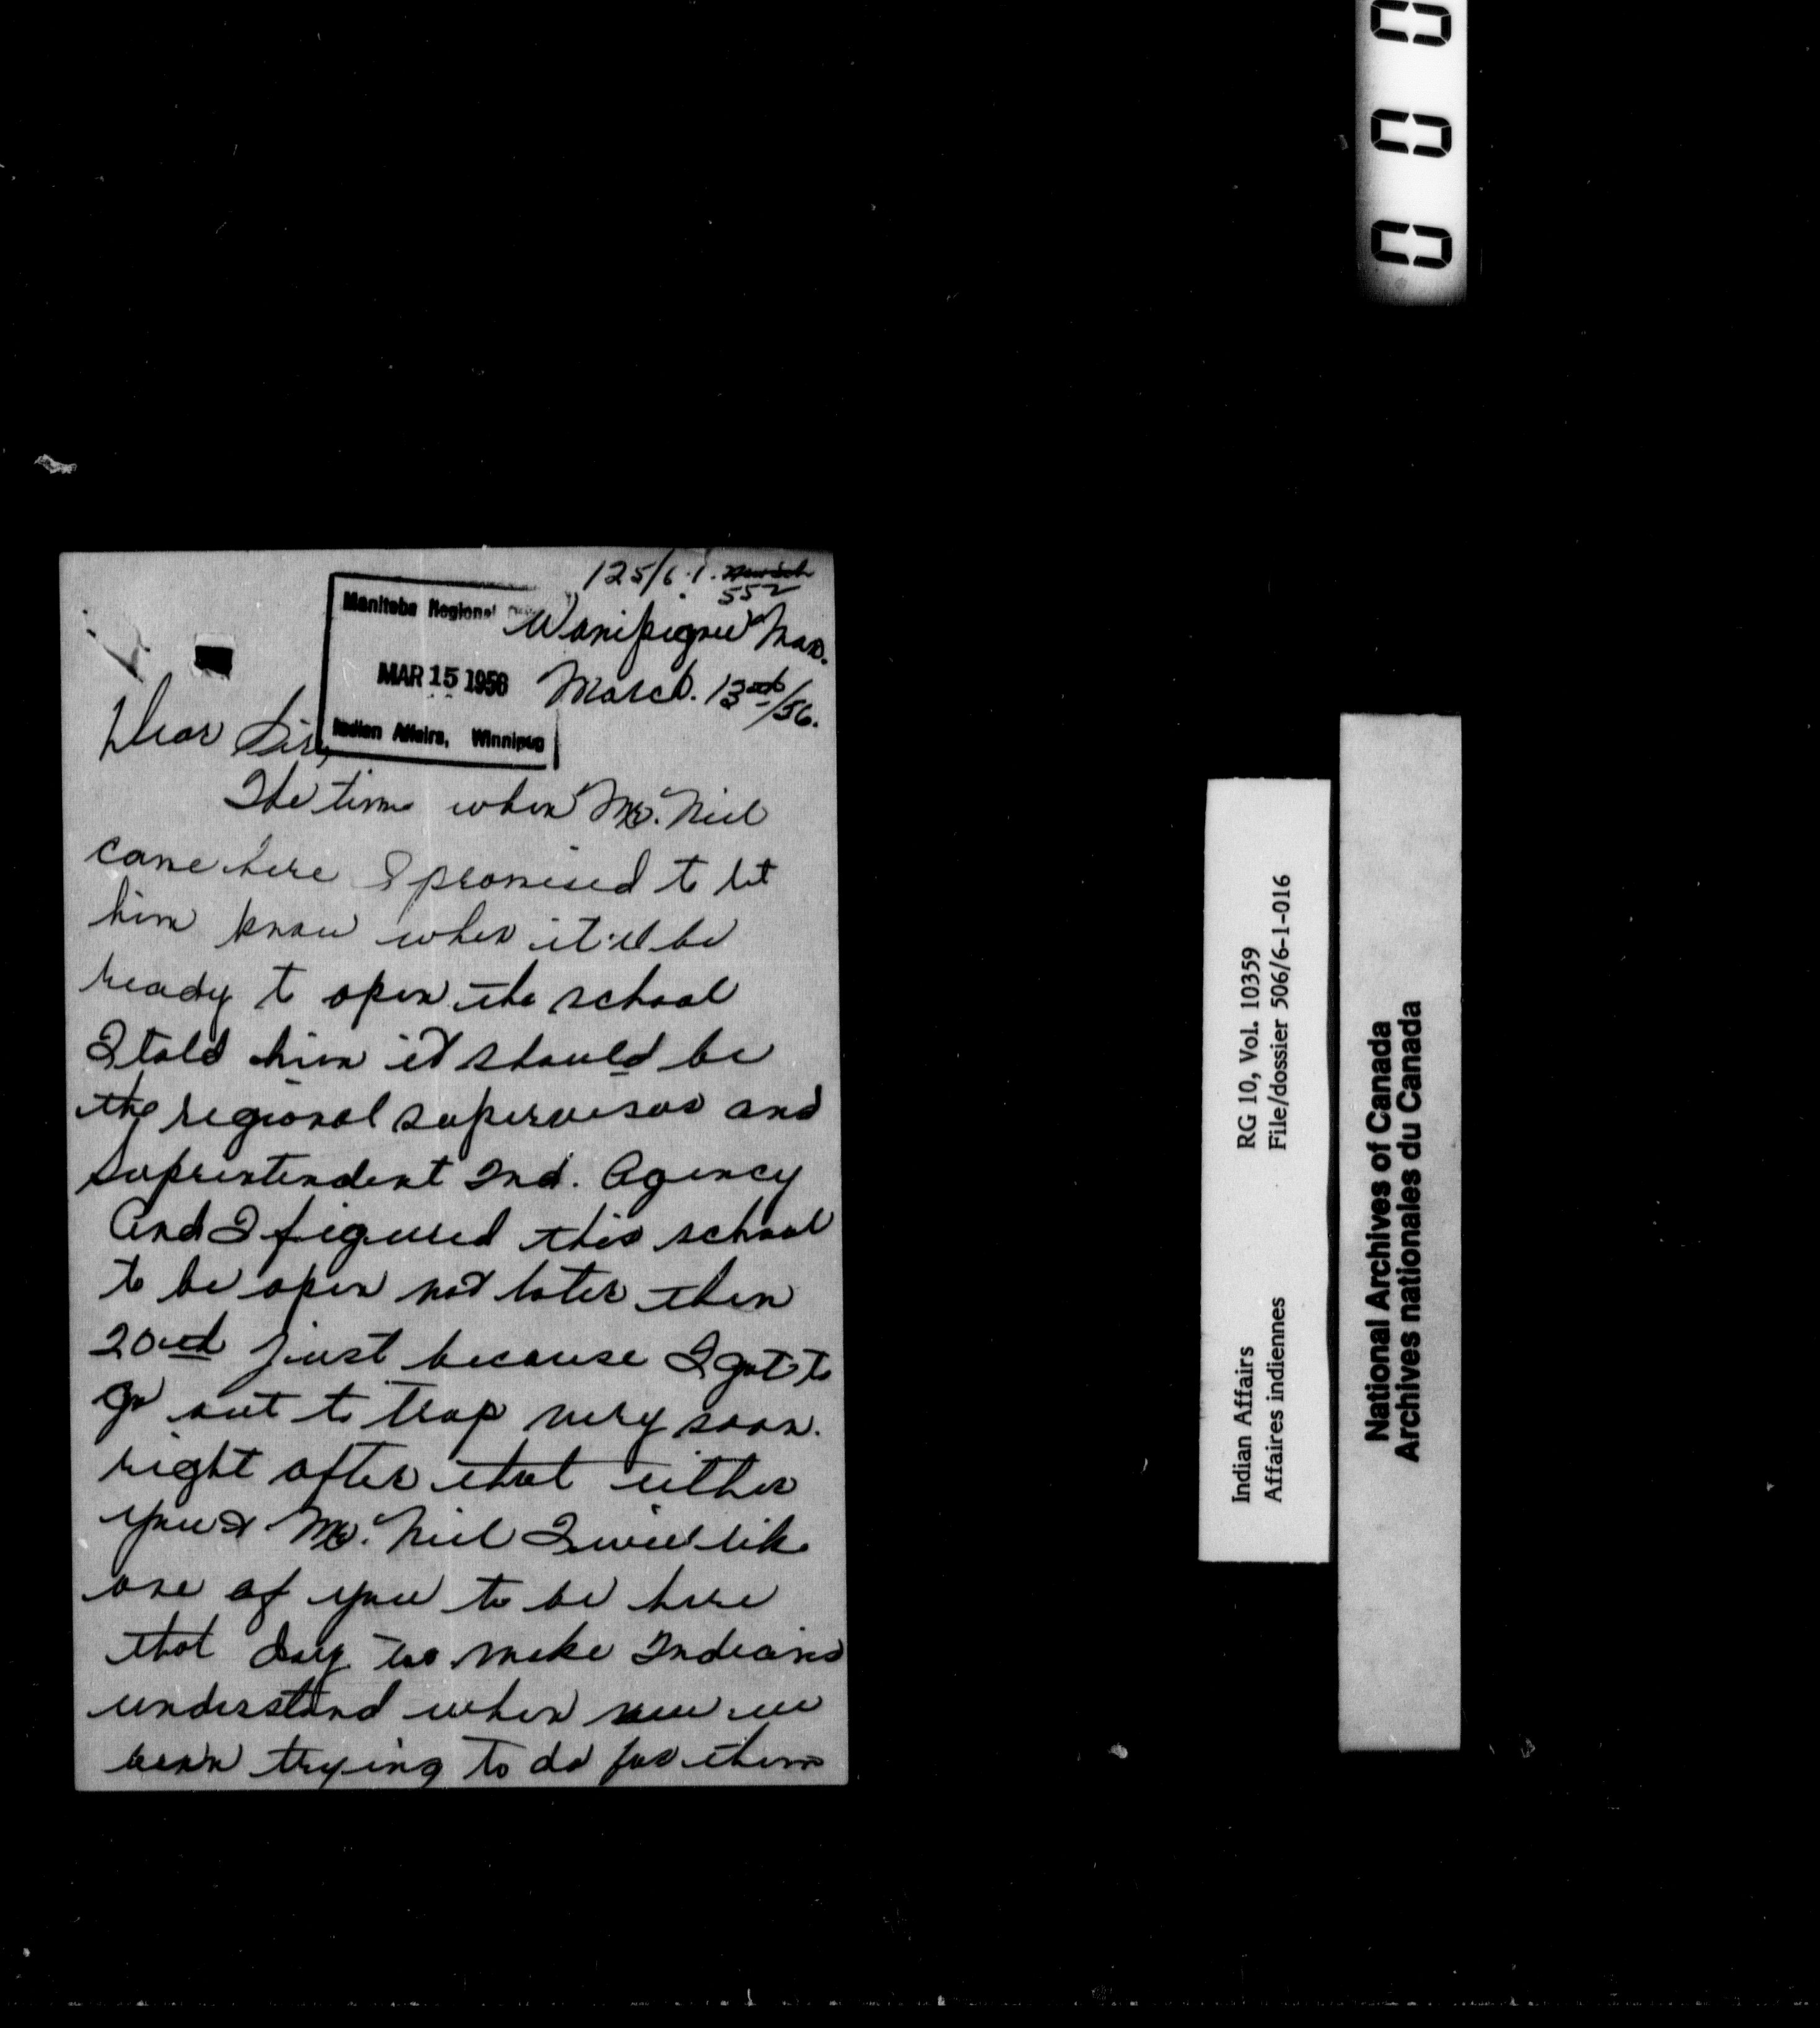 125/6.1.
552
Manitoba Regional
Wanipigow Man.
MAR 15 1956
March. 13th/56.
Indian Affairs, Winnipeg
Dear Sir,
The time when Mr. Niel
came here I promised to let
him know when it'll be
ready to open the school
I told him it should be
the regional supervisor and
Suprentendent Ind. Agency
And I figured this school
to be open not later then
20th just because I got to
go out to trap very soon.
right after that either
you or Mr. Niel I will like
one of you to be here
that day to make Indians
understand when we
been trying to do for them
000
Indian Affairs RG 10, Vol. 10359
Affaires indiennes File/dossier 506/6-1-016
National Archives of Canada
Archives nationales du Canada